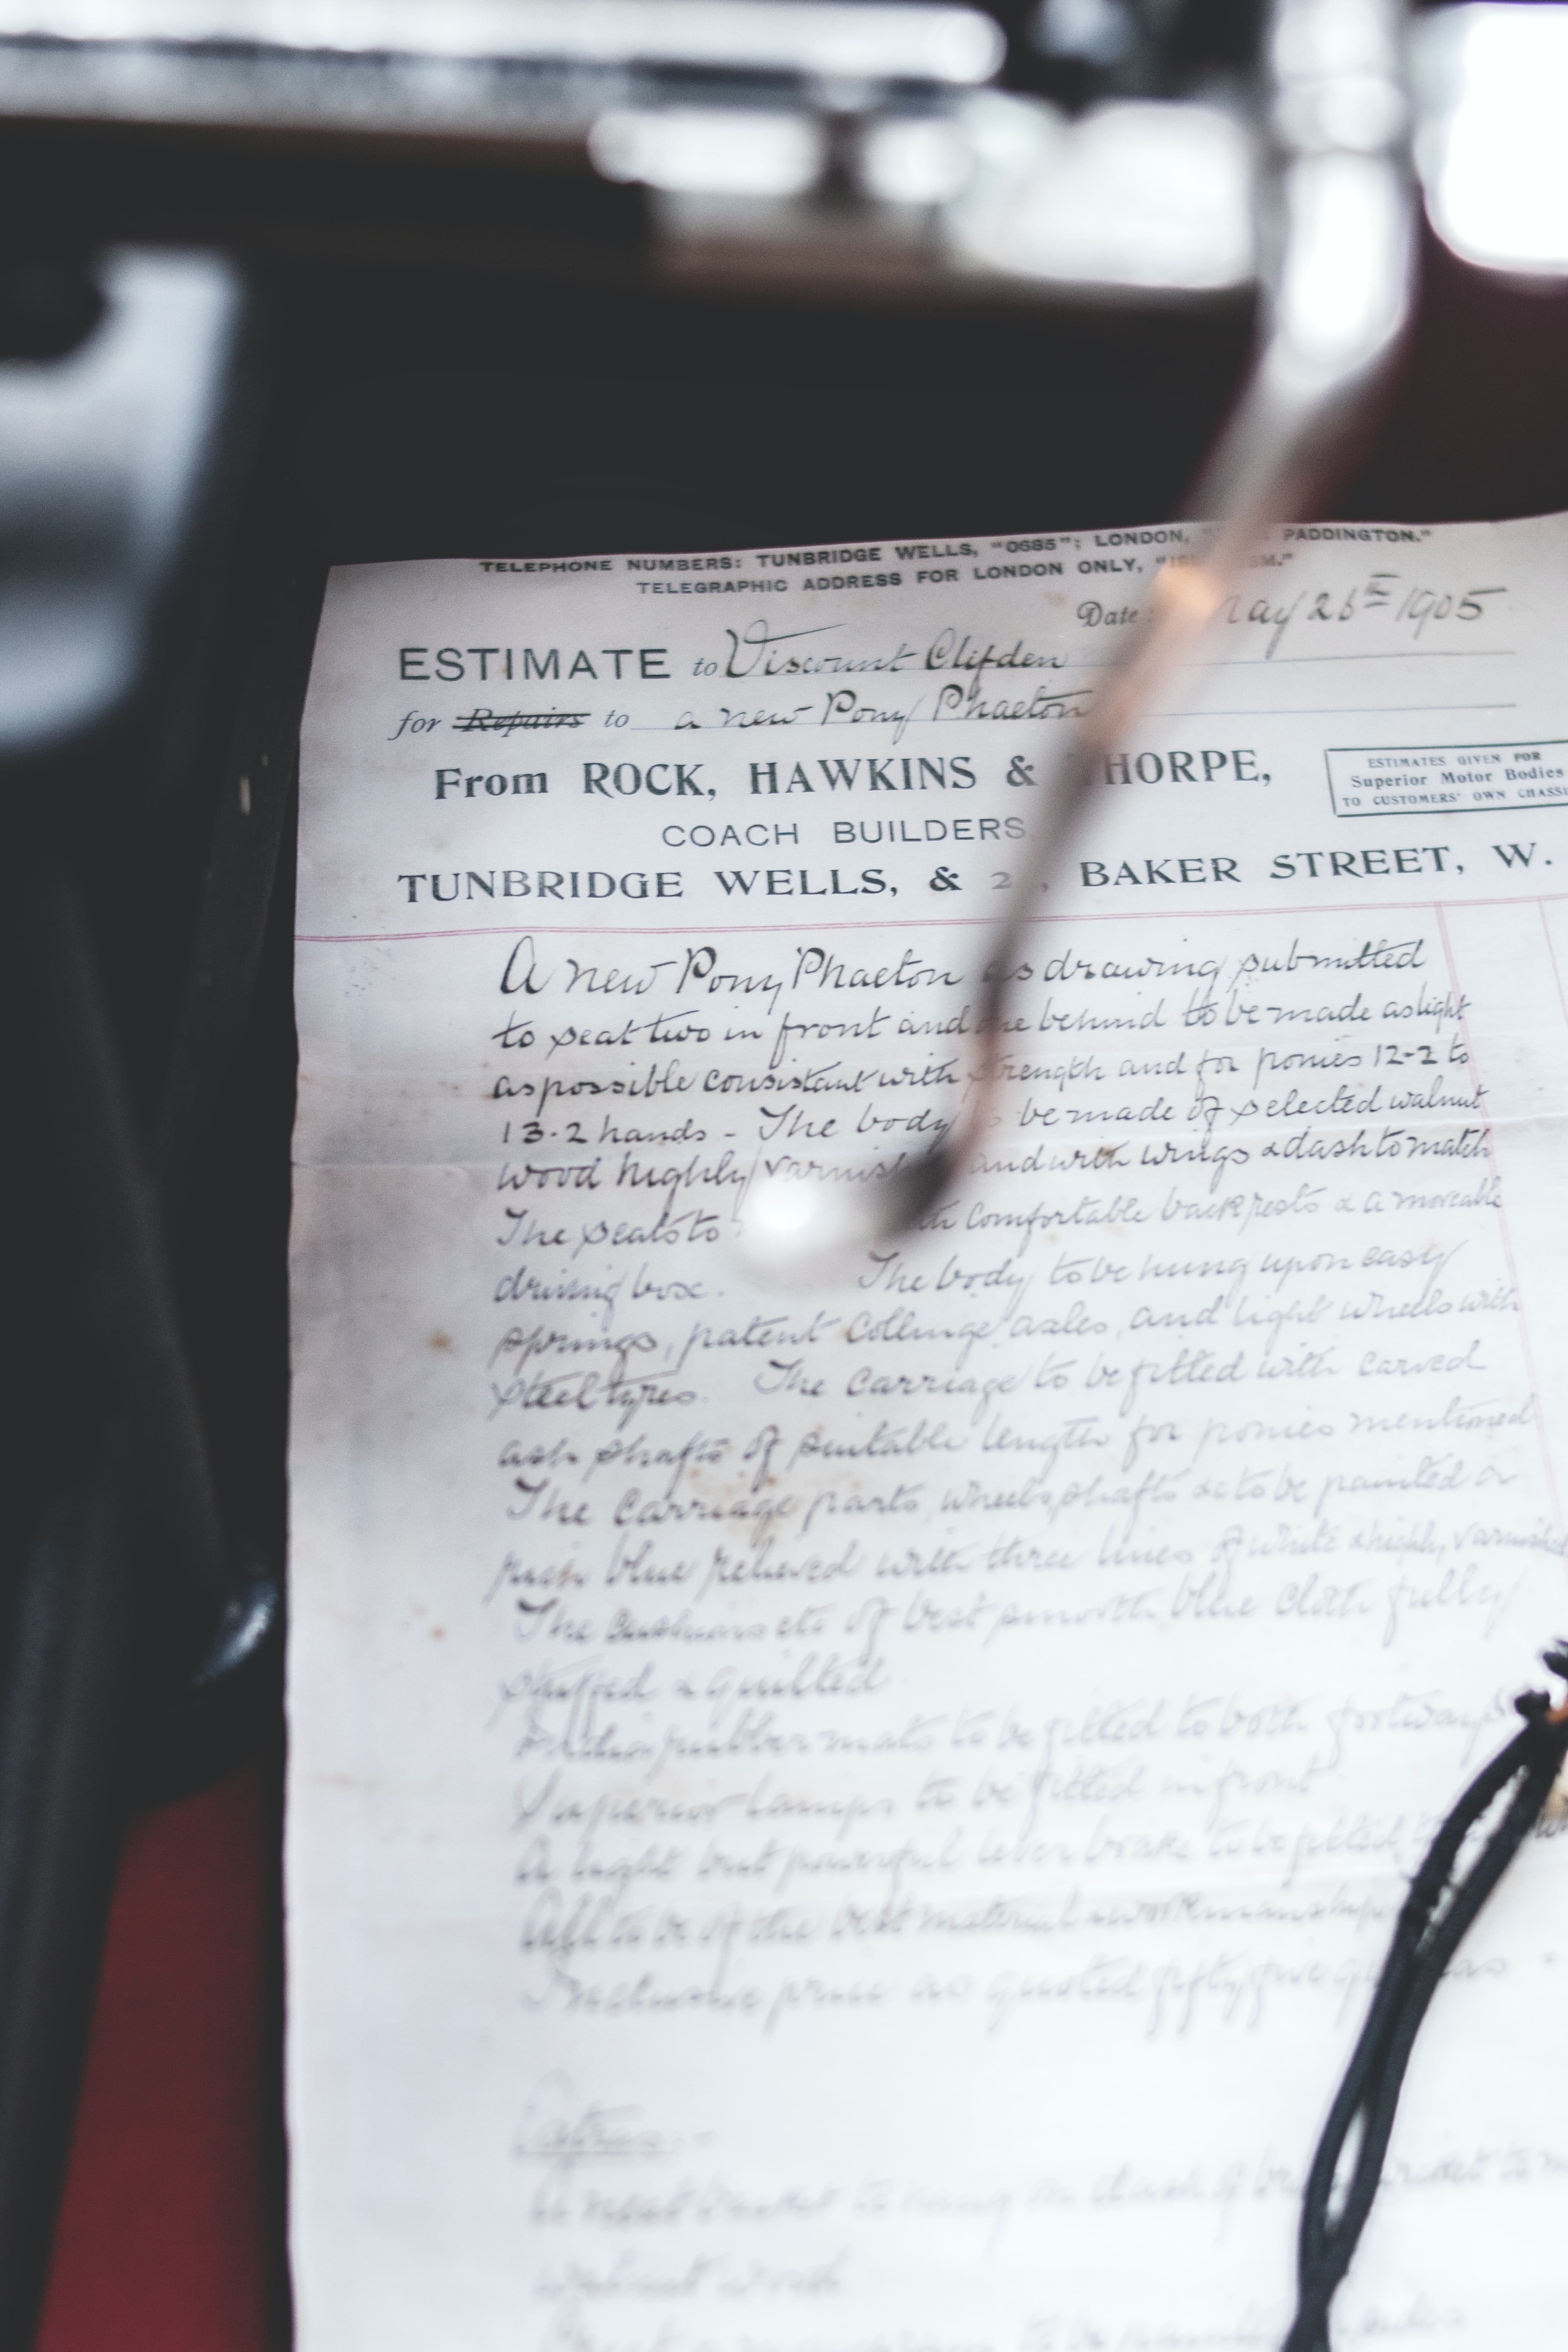 TELEPHONE NUMBERS: TUNBRIDGE WELLS, "0685"; LONDON, PADDINGTON."
TELEGRAPHIC ADDRESS FOR LONDON ONLY,
Date 1905
ESTIMATE to Viscount Clifden
for Repairs to a new Pony Phaeton
From ROCK, HAWKINS & THORPE,
ESTIMATES GIVEN FOR
Superior Motor Bodies
TO CUSTOMERS' OWN
COACH BUILDERS
TUNBRIDGE WELLS, & BAKER STREET, W.
A new Pony Phaeton as drawing submitted
to seat two in front and one behind to be made as light
as possible consistant with strength and for ponies 12-2 to
13-2 hands - The body be made of selected walnut
wood highly and with wings & dash to match
The seats to comfortable back rests & a moveable
driving box. The body to be hung upon easy
springs, patent Collinge axles, and light wheels with
steel tyres. The Carriage to be fitted with carved
ash shafts of suitable length for ponies mentioned
The Carriage parts, wheels, shafts &c to be painted
blue relieved with three lines of white & highly varnished
The cushions etc of best smooth blue cloth fully
stuffed & quilted
India rubber mats to be fitted to both footways
Superior lamps to be fitted in front
A light but powerful lever brake to be fitted
All to be of the best material & workmanship
Inclusive price as quoted fifty five
Extras:-
walnut wood